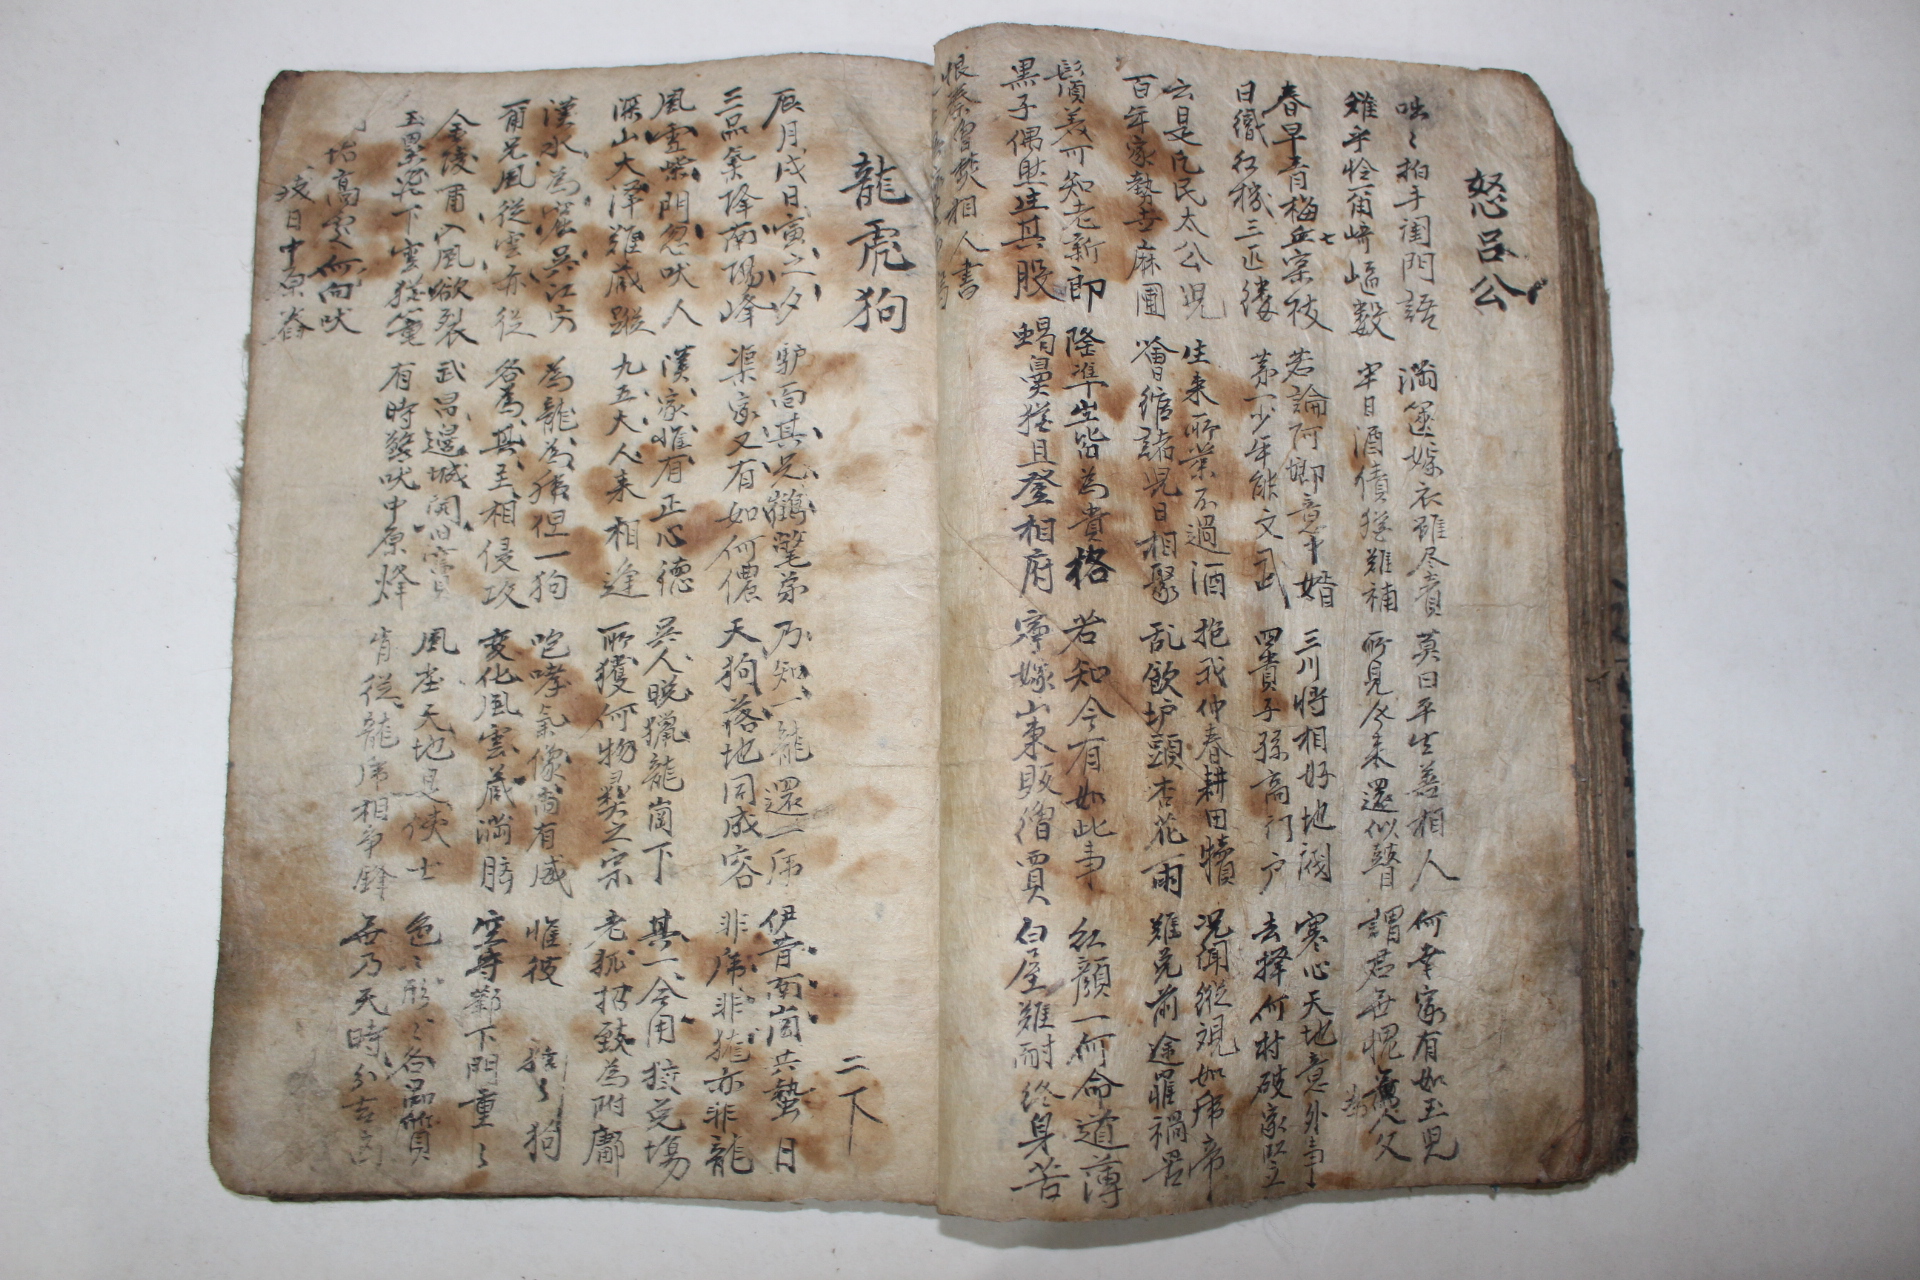 怒呂公
咄〻拍手闺門語 滿篋嫁衣雖尽賣 莫曰平生善相人 何幸家有如玉児
雖乎怜甭崎嶇數 半日酒債猶難補 所見今来還似瞽 謂君無愧為人父
春早青梅宗枝 若論阿卿意中婿 三川將相好地閥 寒心天地意外事
日織紅機三匹縷 第一少年能文武 四貴子孫高门户 去擇何村破家竪
云是民太公児 生来所業不過酒 抱我仲春耕田犢 況闻縱观如帝
百年家勢古麻圃 噲綰諸児日相聚 乱飲垆頭杏花雨 難免前途罹禍罟
鬚美可知老新郎 隆準生皆為貴格 若知今有如此事 紅顔一何命道薄
黒子偶然生其股 蝎鼻猶且登相府 寧嫁山東販繒賈 白屋難耐終身苦
恨曾焚相人書
龍虎狗 二下
辰月戌日寅之夕 驴面其兄鶴氅弟 乃知一龍還一虎 伊昔南崗共蟄日
三品氣降南陽峰 渠家又有如何儂 天狗落地同成容 非虎非亦非龍
風雪柴門忽吠人 漢家惟有正心德 吳人晩獵龍崗下 其一今用狡兎塲
深山大澤難藏蹤 九五大人来相逢 所獲何物之宗 老狐招致為附鄘
漢水為窟吳江穴 為龍為虎但一狗 咆哮氣像尚有威 惟彼 狺〻狗
甭兄風從雲亦從 各為其主相侵攻 变化風雲藏滿胷 空守鄴下門重〻
金陵甭入風欲裂 武昌邊城開旧 風塵天地是俠士 色〻形〻各品質
玉壘下雲猶篭 有時驚吠中原烽 肯從龍虎相争鋒 無乃天時分吉凶
坮高處何向吠
残日中原暮